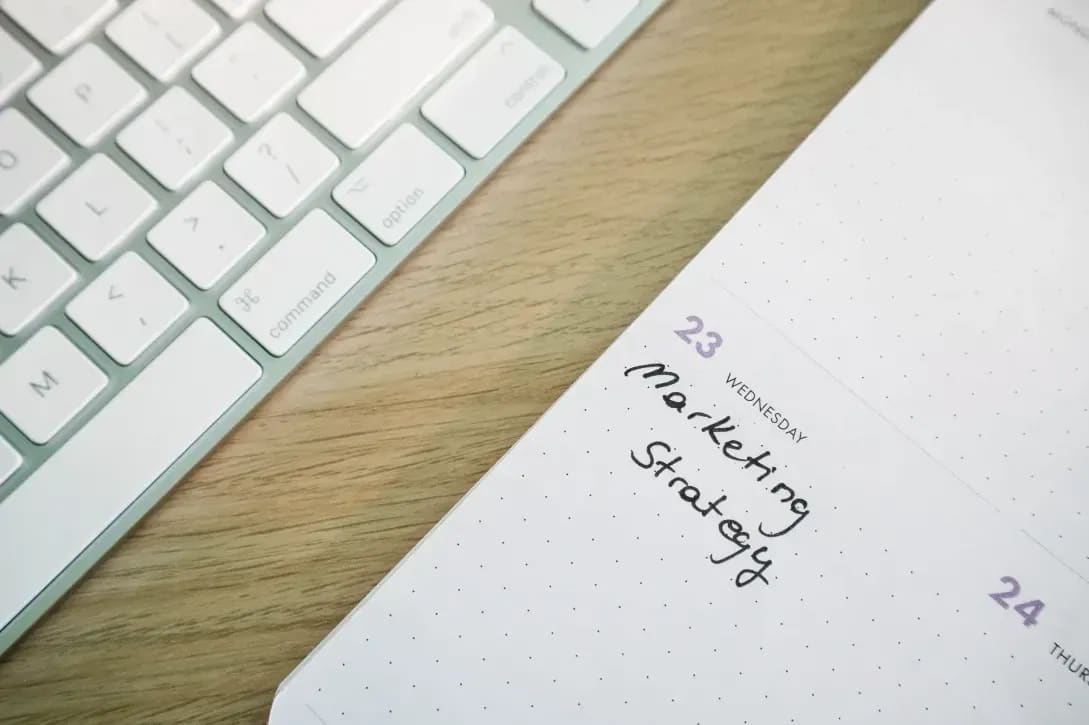 P
O
L
K
M
? /
>
.
<
,
control
⌥
option
⌘
command
23
WEDNESDAY
Marketing
Strategy
24